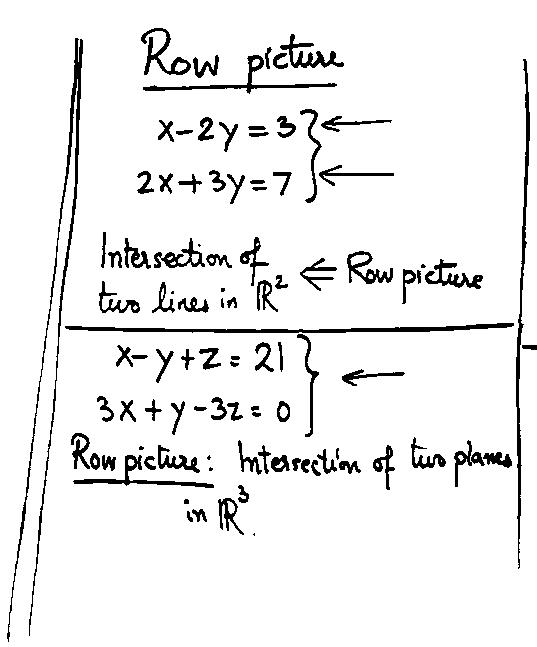 Row picture
x-2y=3
2x+3y=7
Intersection of
two lines in ℝ² ⇐ Row picture
x-y+z=21
3x+y-3z=0
Row picture: Intersection of two planes
in ℝ³.